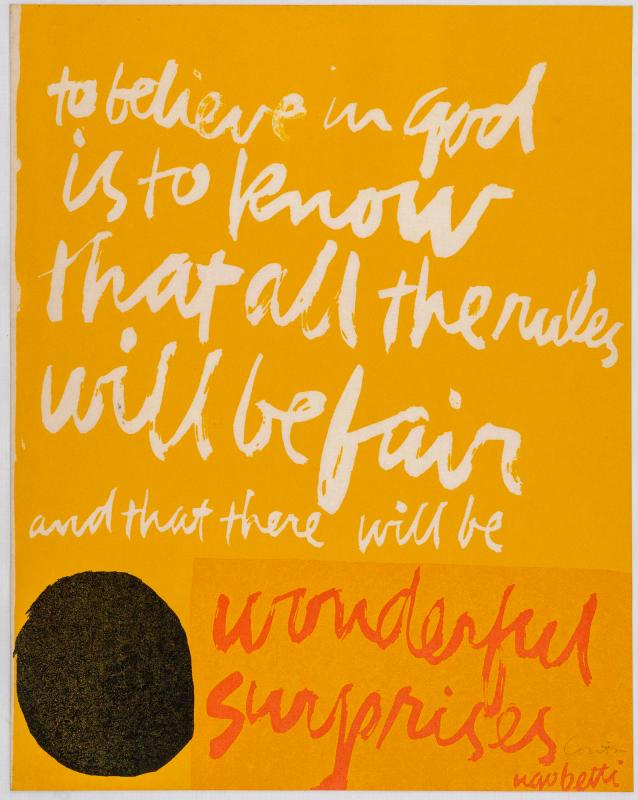 to believe in god
is to know
that all the rules
will be fair
and that there will be
wonderful
surprises
Corita
ugo betti